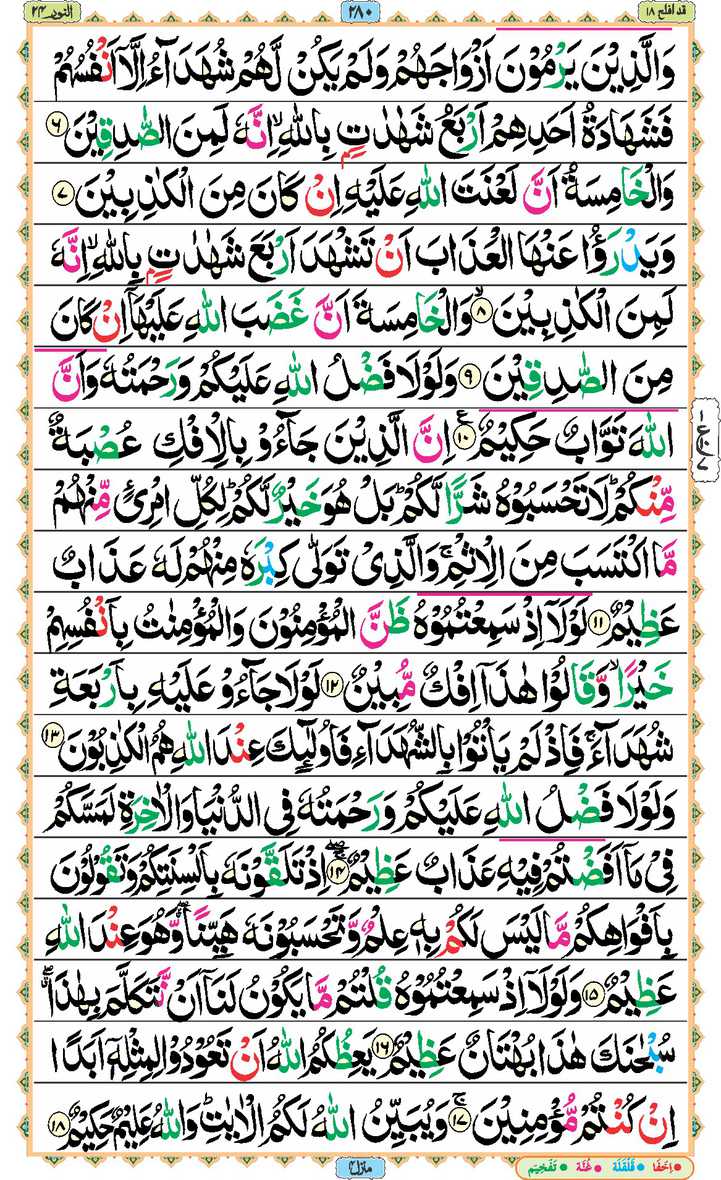 قد افلح ١٨ ٢٨٠ النور ٢٤
وَالَّذِیْنَ یَرْمُوْنَ اَزْوَاجَهُمْ وَلَمْ یَكُنْ لَّهُمْ شُهَدَآءُ اِلَّاۤ اَنْفُسُهُمْ
فَشَهَادَةُ اَحَدِهِمْ اَرْبَعُ شَهٰدٰتٍۭ بِاللّٰهِ ۙ اِنَّهٗ لَمِنَ الصّٰدِقِیْنَ ﴿٦﴾
وَالْخَامِسَةُ اَنَّ لَعْنَتَ اللّٰهِ عَلَیْهِ اِنْ كَانَ مِنَ الْكٰذِبِیْنَ ﴿٧﴾
وَیَدْرَؤُا عَنْهَا الْعَذَابَ اَنْ تَشْهَدَ اَرْبَعَ شَهٰدٰتٍۭ بِاللّٰهِ ۙ اِنَّهٗ
لَمِنَ الْكٰذِبِیْنَ ﴿٨﴾ ۙ وَالْخَامِسَةَ اَنَّ غَضَبَ اللّٰهِ عَلَیْهَاۤ اِنْ كَانَ
مِنَ الصّٰدِقِیْنَ ﴿٩﴾ وَلَوْلَا فَضْلُ اللّٰهِ عَلَیْكُمْ وَرَحْمَتُهٗ وَاَنَّ
اللّٰهَ تَوَّابٌ حَكِیْمٌ ﴿١٠﴾ ع اِنَّ الَّذِیْنَ جَآءُوْ بِالْاِفْكِ عُصْبَةٌ
مِّنْكُمْ ؕ لَا تَحْسَبُوْهُ شَرًّا لَّكُمْ ؕ بَلْ هُوَ خَیْرٌ لَّكُمْ ؕ لِكُلِّ امْرِئٍ مِّنْهُمْ
مَّا اكْتَسَبَ مِنَ الْاِثْمِ ۚ وَالَّذِیْ تَوَلّٰی كِبْرَهٗ مِنْهُمْ لَهٗ عَذَابٌ
عَظِیْمٌ ﴿١١﴾ لَوْلَاۤ اِذْ سَمِعْتُمُوْهُ ظَنَّ الْمُؤْمِنُوْنَ وَالْمُؤْمِنٰتُ بِاَنْفُسِهِمْ
خَیْرًا ۙ وَّقَالُوْا هٰذَاۤ اِفْكٌ مُّبِیْنٌ ﴿١٢﴾ لَوْلَا جَآءُوْ عَلَیْهِ بِاَرْبَعَةِ
شُهَدَآءَ ۚ فَاِذْ لَمْ یَاْتُوْا بِالشُّهَدَآءِ فَاُولٰٓئِكَ عِنْدَ اللّٰهِ هُمُ الْكٰذِبُوْنَ ﴿١٣﴾
وَلَوْلَا فَضْلُ اللّٰهِ عَلَیْكُمْ وَرَحْمَتُهٗ فِی الدُّنْیَا وَالْاٰخِرَةِ لَمَسَّكُمْ
فِیْ مَاۤ اَفَضْتُمْ فِیْهِ عَذَابٌ عَظِیْمٌ ﴿١٤﴾ اِذْ تَلَقَّوْنَهٗ بِاَلْسِنَتِكُمْ وَتَقُوْلُوْنَ
بِاَفْوَاهِكُمْ مَّا لَیْسَ لَكُمْ بِهٖ عِلْمٌ وَّتَحْسَبُوْنَهٗ هَیِّنًا ۖ وَّهُوَ عِنْدَ اللّٰهِ
عَظِیْمٌ ﴿١٥﴾ وَلَوْلَاۤ اِذْ سَمِعْتُمُوْهُ قُلْتُمْ مَّا یَكُوْنُ لَنَاۤ اَنْ نَّتَكَلَّمَ بِهٰذَا ۖ
سُبْحٰنَكَ هٰذَا بُهْتَانٌ عَظِیْمٌ ﴿١٦﴾ یَعِظُكُمُ اللّٰهُ اَنْ تَعُوْدُوْا لِمِثْلِهٖۤ اَبَدًا
اِنْ كُنْتُمْ مُّؤْمِنِیْنَ ﴿١٧﴾ ۚ وَیُبَیِّنُ اللّٰهُ لَكُمُ الْاٰیٰتِ ؕ وَاللّٰهُ عَلِیْمٌ حَكِیْمٌ ﴿١٨﴾
اِخْفَا قَلْقَلَة غُنَّة تَفْخِيْم